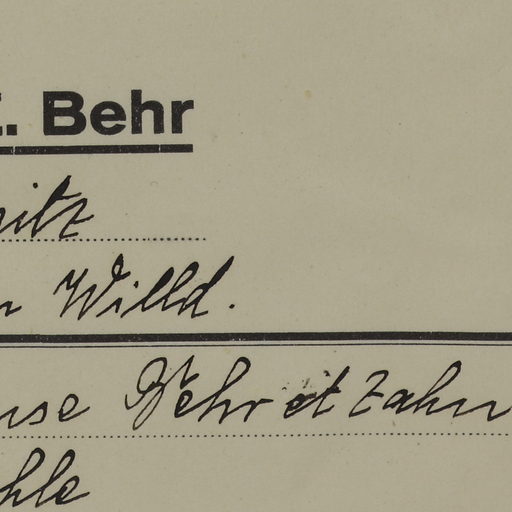 E. Behr
nitz
n Willd.
use Behr et Zahn
hle